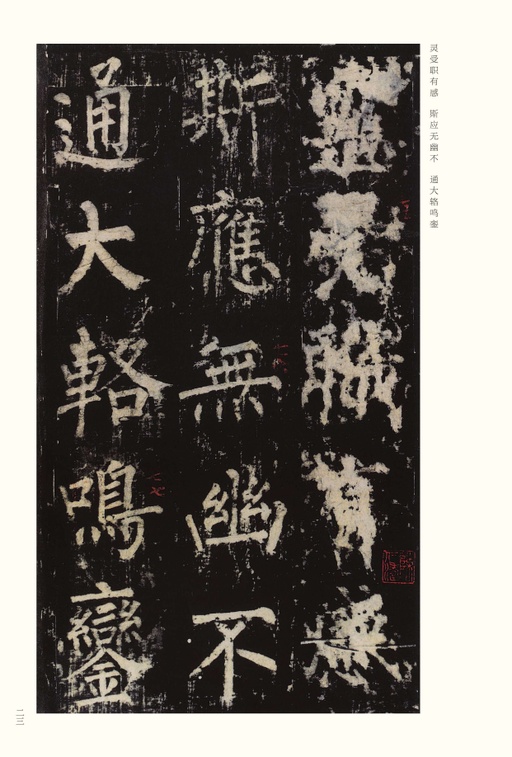 灵受职有感 斯应无幽不 通大辂鸣銮
靈受職有感
斯應無幽不
通大輅鳴鑾
二三